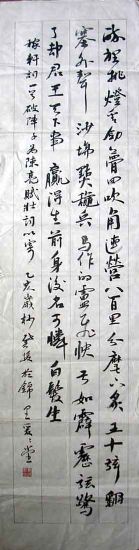 醉裡挑燈看劍夢回吹角連營八百里分麾下炙五十弦翻
塞外聲沙場秋點兵馬作的盧飛快弓如霹靂弦驚
了却君王天下事贏得生前身後名可憐白髮生
稼軒詞一首破陣子為陳亮賦壯詞以寄乙亥歲杪於錦里